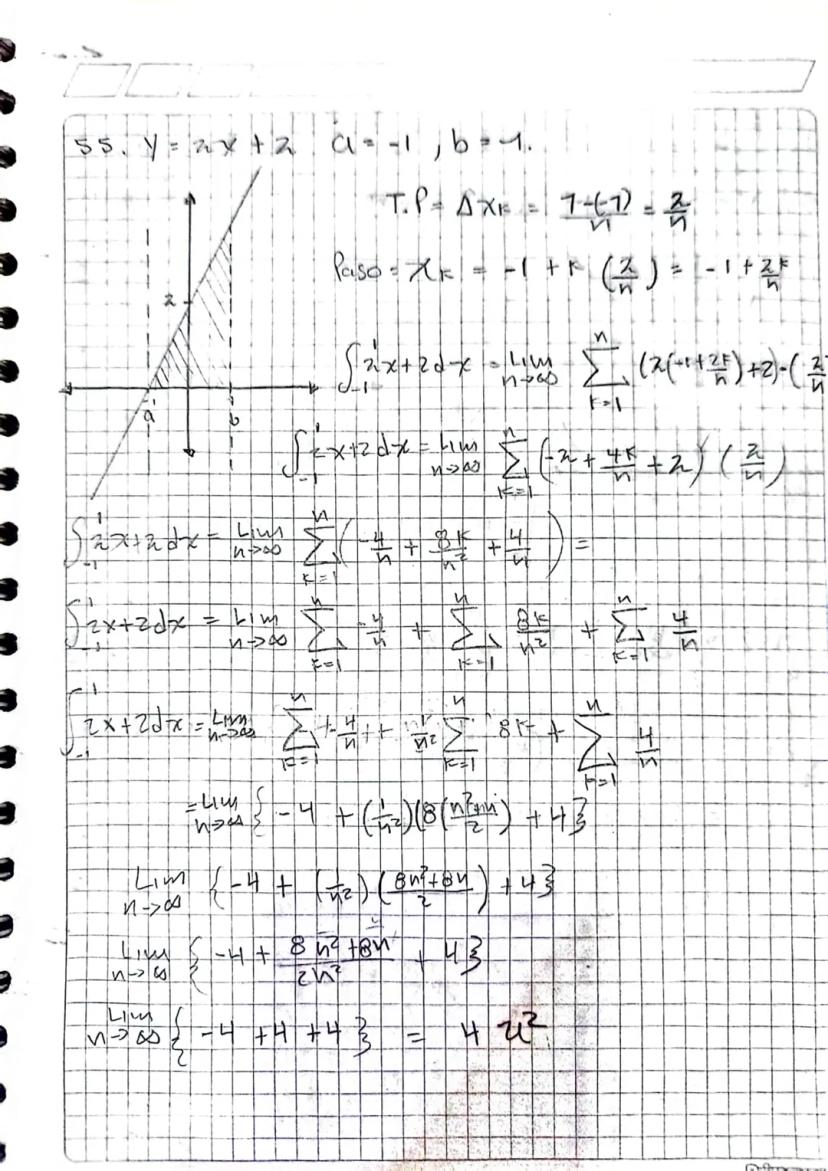 55. y = 2x + 2 a = -1, b = 1.
T.P = Δxₖ = 1-(-1)/n = 2/n
Paso = xₖ = -1 + k (2/n) = -1 + 2k/n
2
a b
∫₋₁¹ 2x+2 dx = Lim n→∞ Σ k=1 n (2(-1+2k/n)+2)·(2/n
∫₋₁¹ 2x+2 dx = Lim n→∞ Σ k=1 n (-2 + 4k/n + 2) (2/n)
∫₋₁¹ 2x+2 dx = Lim n→∞ Σ k=1 n (-4/n + 8k/n² + 4/n) =
∫₋₁¹ 2x+2 dx = Lim n→∞ Σ k=1 n -4/n + Σ k=1 n 8k/n² + Σ k=1 n 4/n
∫₋₁¹ 2x+2 dx = Lim n→∞ Σ k=1 n -4/n + 1/n² Σ k=1 n 8k + Σ k=1 n 4/n
= Lim n→∞ { -4 + (1/n²)(8(n²+n/2) + 4}
Lim n→∞ {-4 + (1/n²) (8n²+8n/2) + 4}
Lim n→∞ { -4 + 8n²+8n/2n² + 4}
Lim n→∞ { -4 +4 +4 } = 4 u²